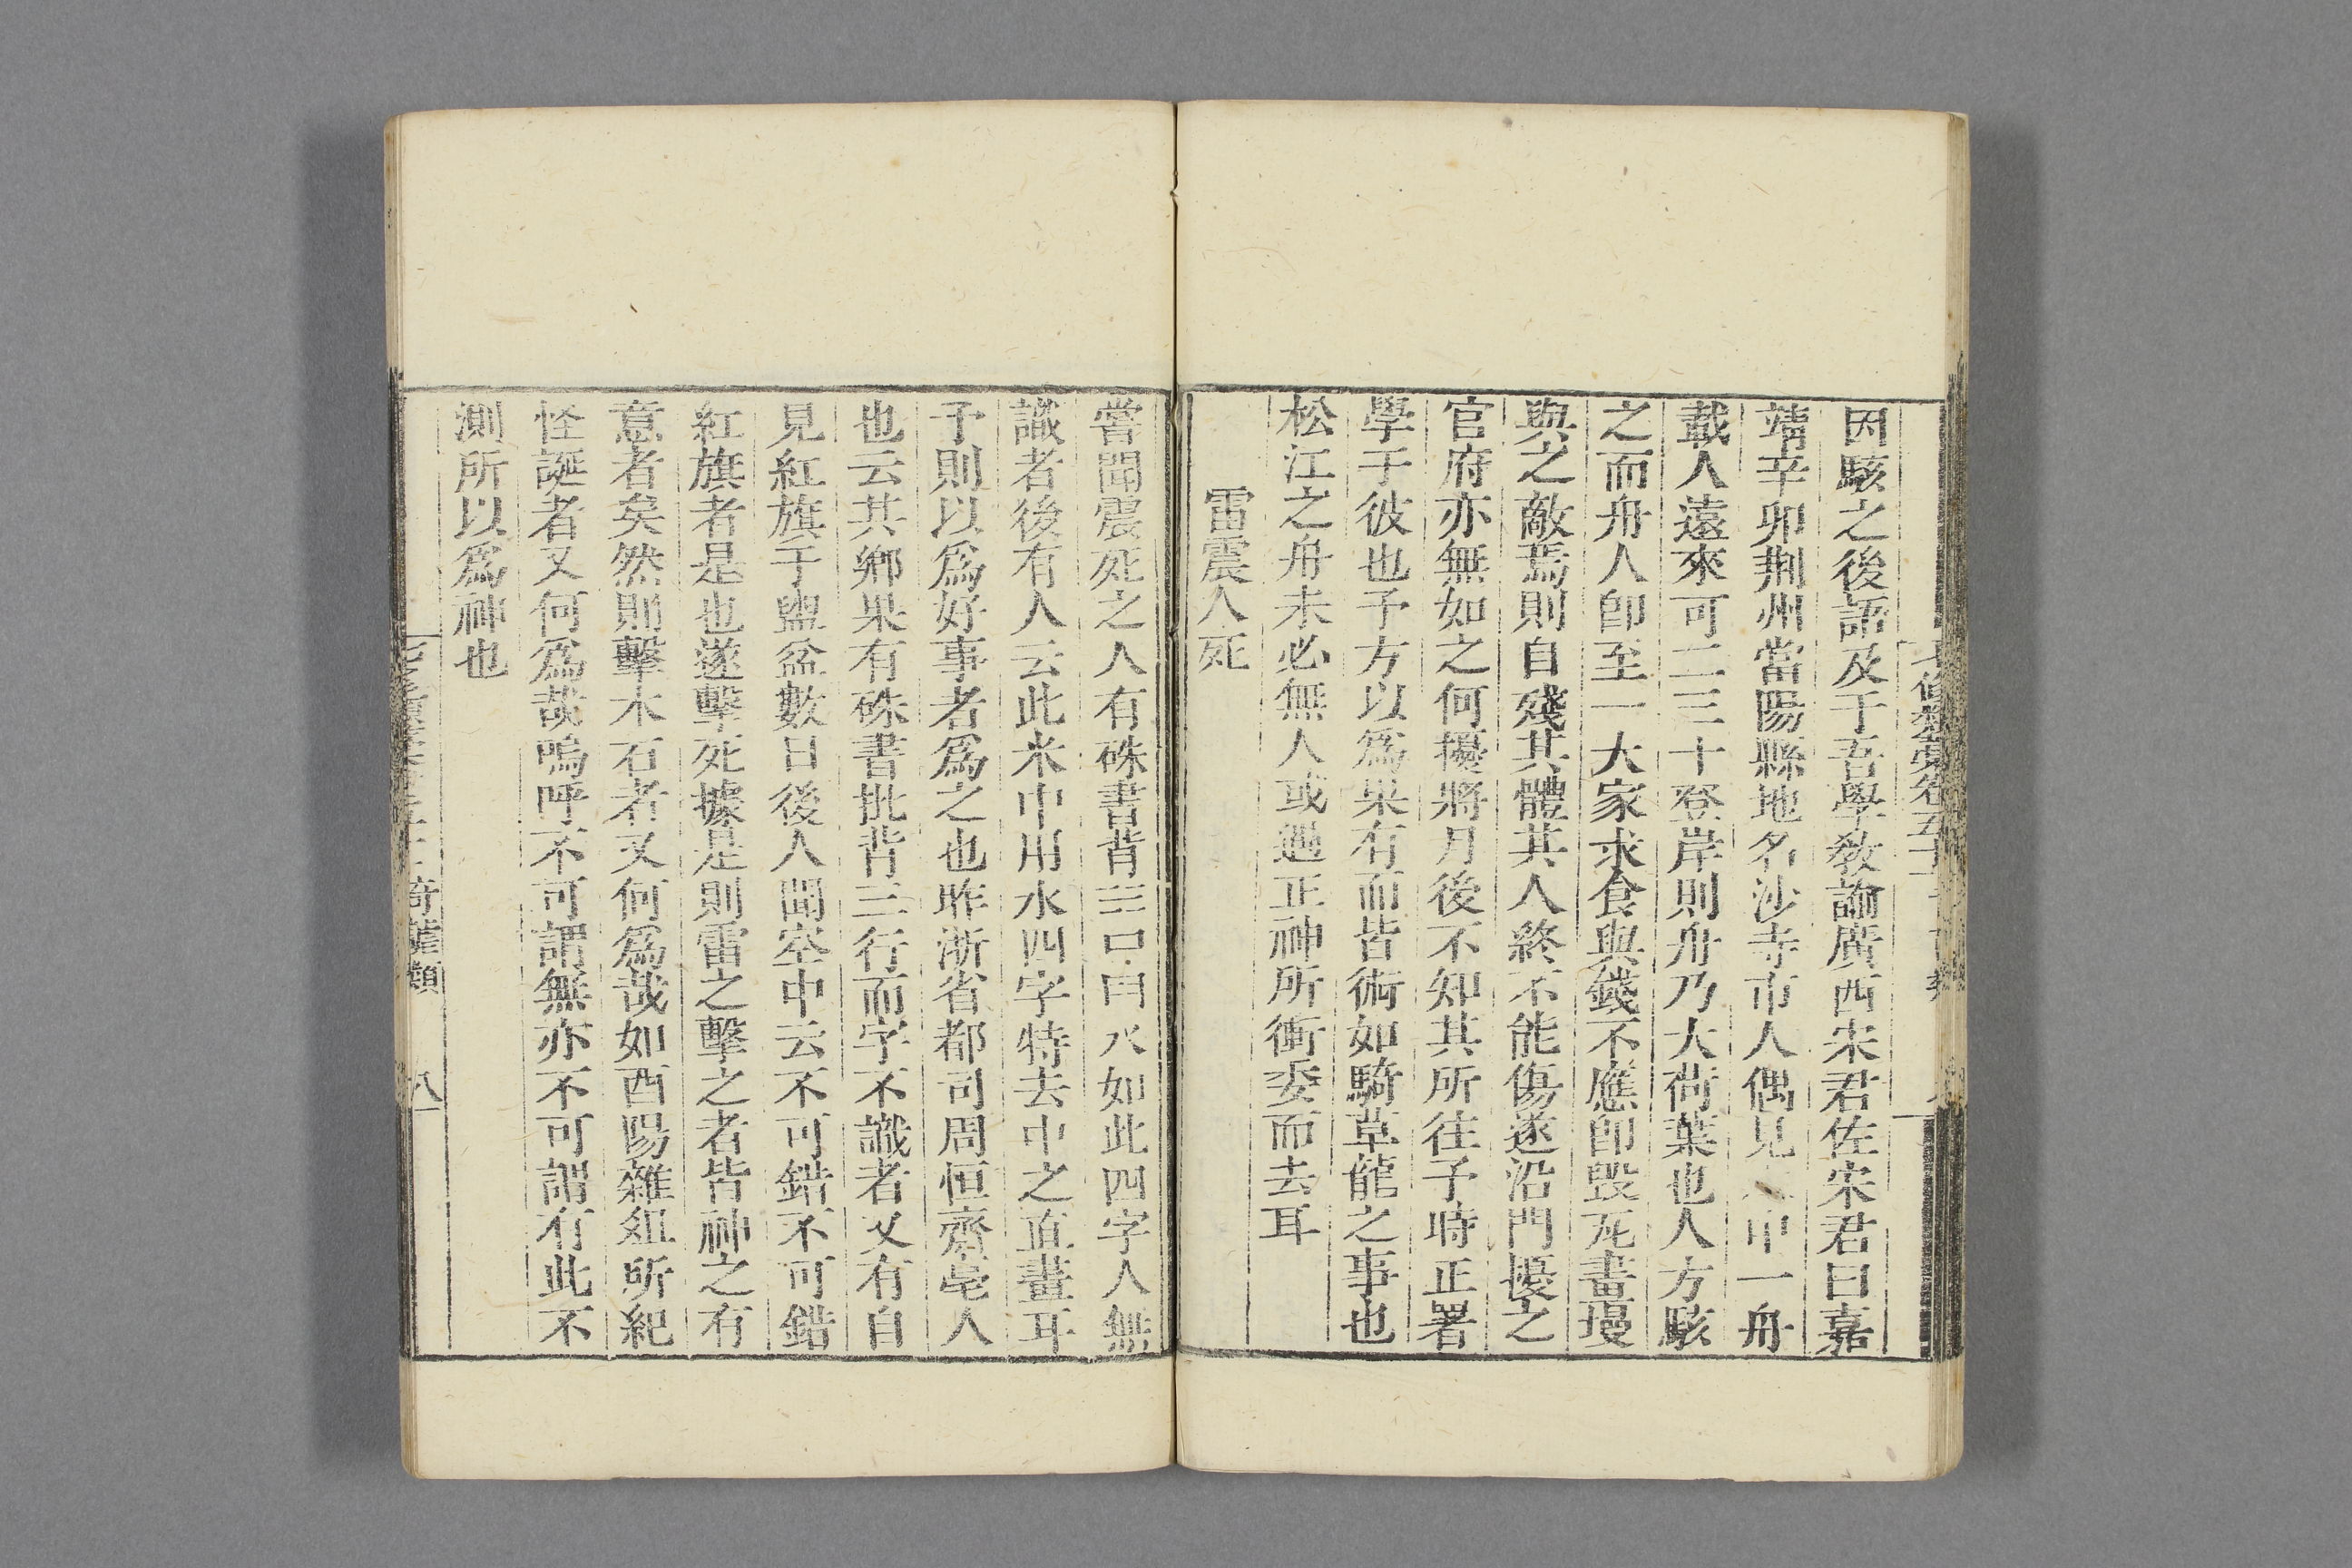 因駭之後語及于吾學教諭廣西宋君佐宋君曰嘉
靖辛卯荆州當陽縣地名沙寺市人偶見中一舟
載人遠來可二三十登岸則舟乃大荷葉也人方駭
之而舟人卽至一大家求食與錢不應卽毀瓦畫墁
與之敵焉則自殘其體其人終不能傷遂沿門擾之
官府亦無如之何擾將月後不知其所往予時正署
學于彼也予方以爲果有而皆術如騎草龍之事也
松江之舟未必無人或遇正神所衝委而去耳
雷震人死
嘗聞震死之人有硃書背三口曰八如此四字人無
識者後有人云此米中用水四字特去中之直畫耳
予則以爲好事者爲之也昨浙省都司周恒齋亳人
也云其鄉果有硃書批背三行而字不識者又有自
見紅旗于盥盆數日後人聞空中云不可錯不可錯
紅旗者是也遂擊死據是則雷之擊之者皆神之有
意者矣然則擊木石者又何爲哉如酉陽雜俎所紀
怪誕者又何爲哉嗚呼不可謂無亦不可謂有此不
測所以爲神也
奇謔類
八